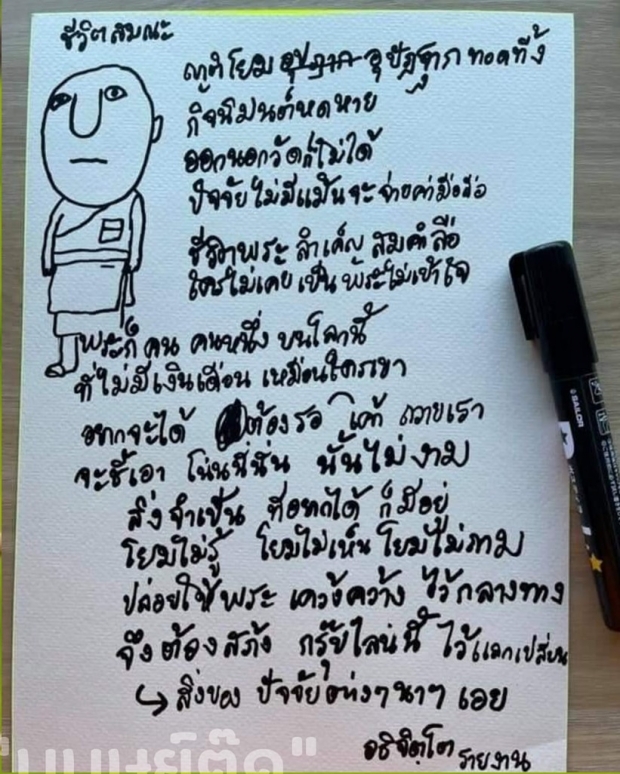 ชีวิตสมณะ
ญาติโยม อุปฐาก อุปัฏฐาก ทอดทิ้ง
กิจนิมนต์หดหาย
ออกนอกวัดก็ไม่ได้
ปัจจัยไม่มีแม้นจะจ่ายค่ามือถือ
ชีวิตพระ ลำเค็ญ สมคำลือ
ใครไม่เคยเป็นพระไม่เข้าใจ
พระก็ คน คนหนึ่ง บนโลกนี้
ที่ไม่มีเงินเดือน เหมือนใครเขา
อยากจะได้ ต้องรอ เค้า ถวายเรา
จะชี้เอา โน่นนี่นั่น นั้นไม่งาม
สิ่งจำเป็น ที่อยากได้ ก็มีอยู่
โยมไม่รู้ โยมไม่เห็น โยมไม่ถาม
ปล่อยให้พระ เคว้งคว้าง ไว้กลางทาง
จึงต้องสร้าง กรุ๊ปไลน์นี้ ไว้แลกเปลี่ยน
↳ สิ่งของ ปัจจัยต่างๆนาๆ เอย
อธิจิตฺโต รายงาน
SAILOR
"มนุษย์ต๊ิด"